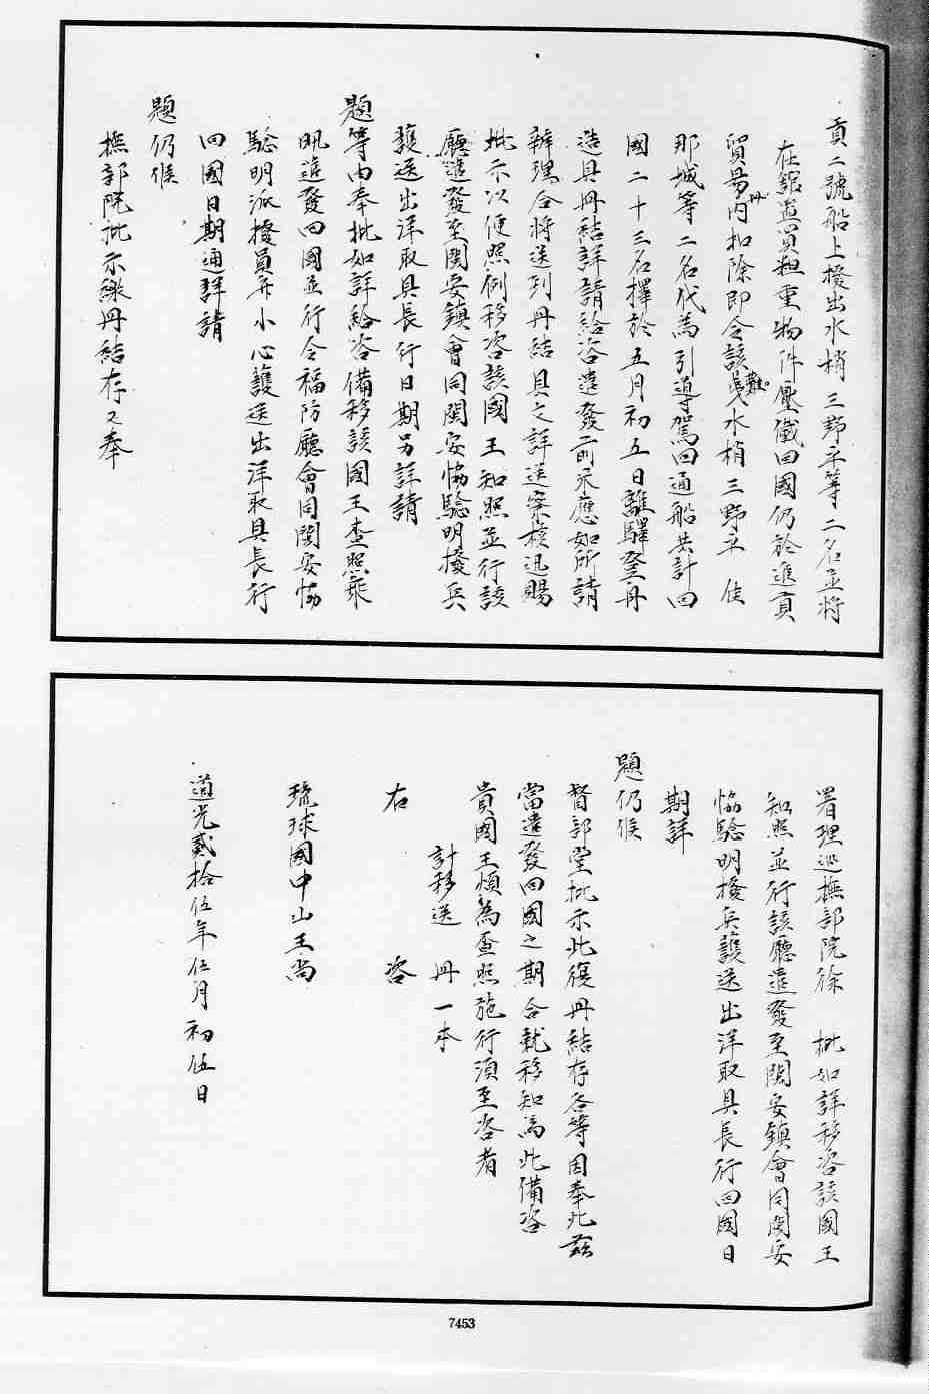 貢二號船上撥出水梢三野平等二名並將
在館置買粗重物件壓儎回國仍於進貢
貿易冊內扣除即令該難曳水梢三野平佳
那城等二名代為引導駕回通船共計回
國二十三名擇於五月初五日離驛登舟
造具冊結詳請給咨遣發前來應如所請
辦理合將送到冊結具文詳送察核迅賜
批示以便照例移咨該國王知照並行該
廳遣發至閩安鎮會同閩安協驗明撥兵
護送出洋取具長行日期另詳請
題等由奉批如詳給咨備移該國王查照飛
飭遣發回國並行令福防廳會同閩安協
驗明派撥員弁小心護送出洋取具長行
回國日期通詳請
題仍候
撫部院批示繳冊結存又奉
署理巡撫部院徐 批如詳移咨該國王
知照並行該廳遣發至閩安鎮會同閩安
協驗明撥兵護送出洋取具長行回國日
期詳
題仍候
督部堂批示此復冊結存各等因奉此茲
當遣發回國之期合就移知為此備咨
貴國王煩為查照施行須至咨者
計移送 冊一本
右 咨
琉球國中山王尚
道光貳拾伍年伍月初伍日
7453